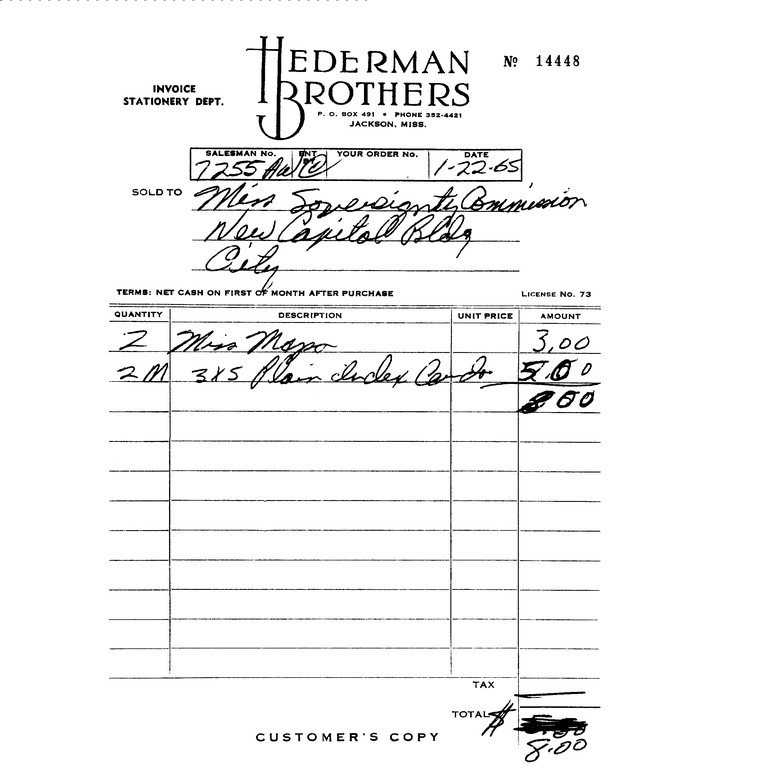 HEDERMAN BROTHERS
Nº 14448
INVOICE
STATIONERY DEPT.
P. O. BOX 491 • PHONE 352-4421
JACKSON, MISS.
SALESMAN No. ENT BY YOUR ORDER No. DATE
7255 1-22-65
SOLD TO Miss Sovereignty Commission
New Capitol Bldg
City
TERMS: NET CASH ON FIRST OF MONTH AFTER PURCHASE LICENSE No. 73
QUANTITY DESCRIPTION UNIT PRICE AMOUNT
2 Miss Maps 3.00
2 M 3x5 Plain index Cards 5.00
8 00
TAX
TOTAL $
8.00
CUSTOMER'S COPY